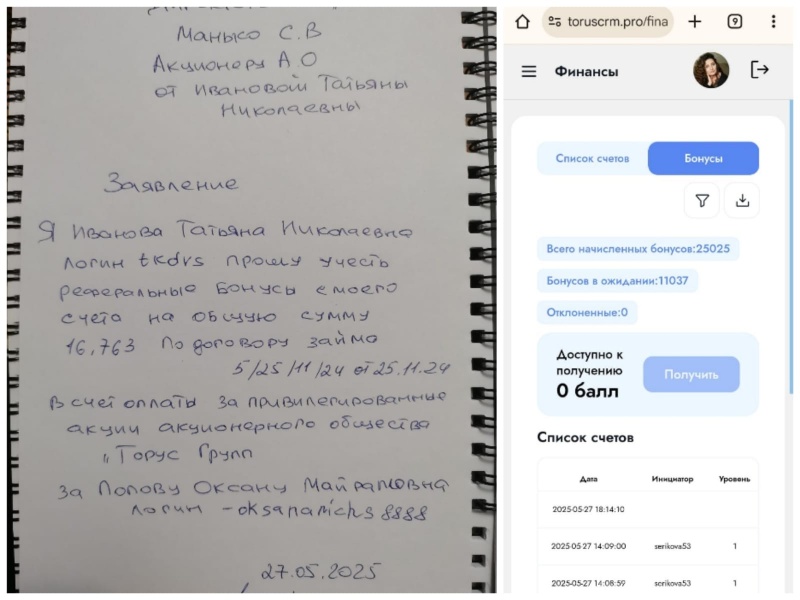 Манько С.В
Акционеру А.О
от Ивановой Татьяны
Николаевны
Заявление
Я Иванова Татьяна Николаевна
логин tkdvs прошу учесть
реферальные бонусы с моего
счета на общую сумму
16,763 по договору займа
5/25/11/24 от 25.11.24
В счет оплаты за привилегированные
акции акционерного общества
"Торус Групп
за Попову Оксану
логин -
27.05.2025
toruscrm.pro/fina
9
Финансы
Список счетов
Бонусы
Всего начисленных бонусов:25025
Бонусов в ожидании:11037
Отклоненные:0
Доступно к
получению
0 балл
Получить
Список счетов
Дата Инициатор Уровень
2025-05-27 18:14:10
2025-05-27 14:09:00 serikova53 1
2025-05-27 14:08:59 serikova53 1